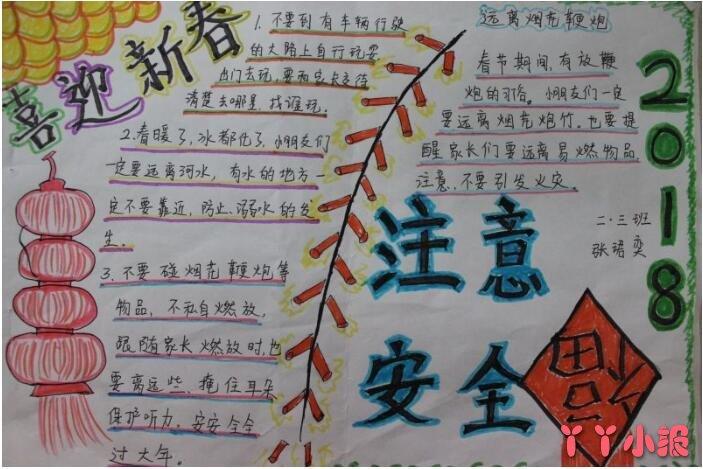 喜迎新春
1.不要到有车辆行驶
的大路上自行玩耍
出门去玩,要和家长交待
清楚去哪里,找谁玩。
2.春暖了,冰都化了,小朋友们
一定要远离河水,有水的地方一
定不要靠近,防止、溺水的发
生。
3.不要碰烟花鞭炮等
物品,不私自燃放,
跟随家长燃放时,也
要离远些、掩住耳朵
保护听力,安安全全
过大年。
远离烟花鞭炮
春节期间,有放鞭
炮的习俗。小朋友们一定
要远离烟花炮竹。也要提
醒家长们要远离易燃物品,
注意、不要引发火灾。
二·三班
张珺奕
2018
注意
安全
福
丫丫小报